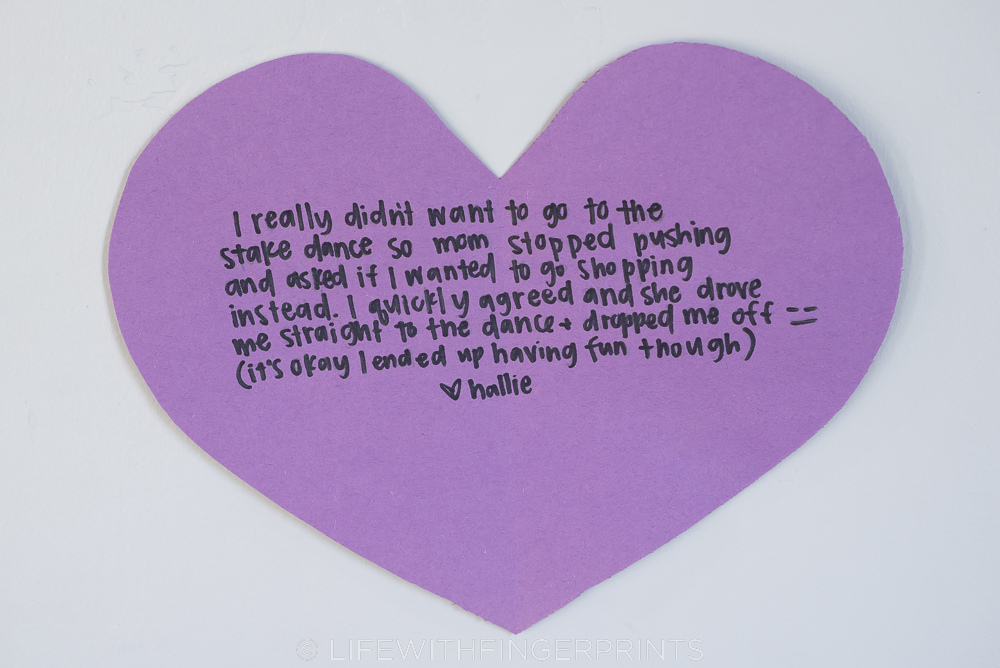 I really didn't want to go to the
stake dance so mom stopped pushing
and asked if I wanted to go shopping
instead. I quickly agreed and she drove
me straight to the dance + dropped me off --
(it's okay I ended up having fun though)
♡ hallie
© LIFEWITHFINGERPRINTS